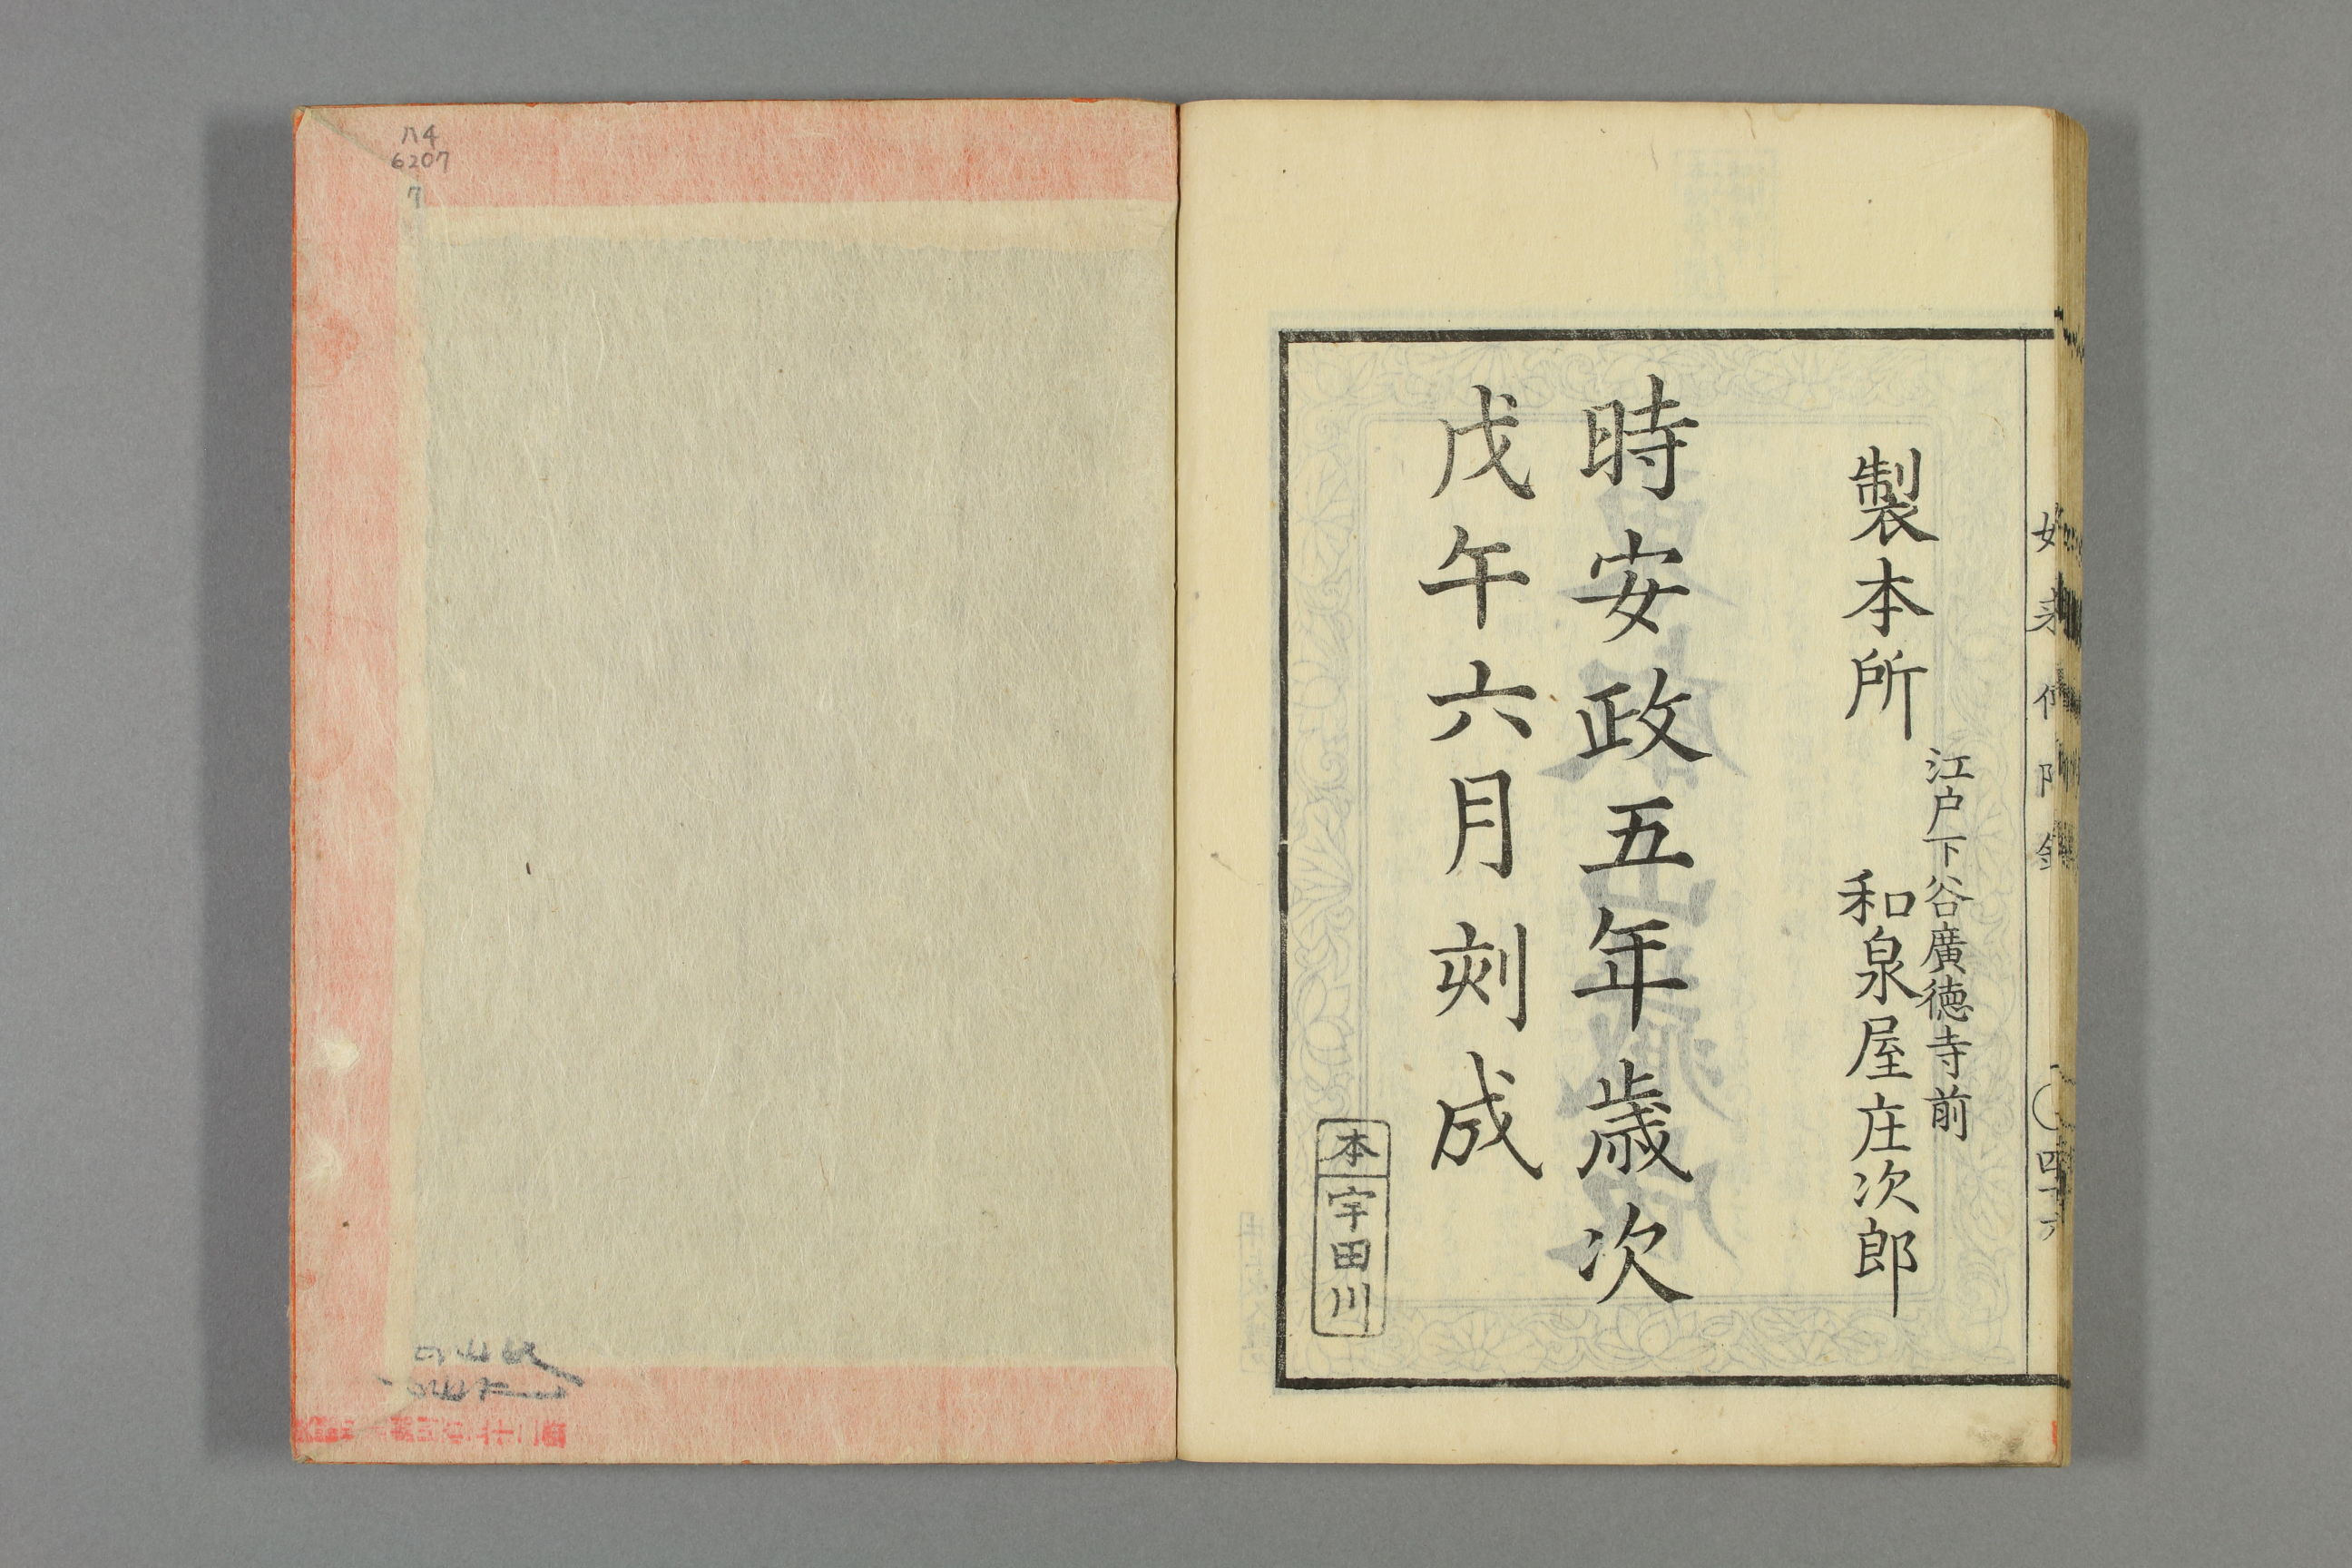 製本所
江戸下谷廣徳寺前
和泉屋庄次郎
時安政五年歳次
戊午六月刻成
本
宇田川
八4
6207
7